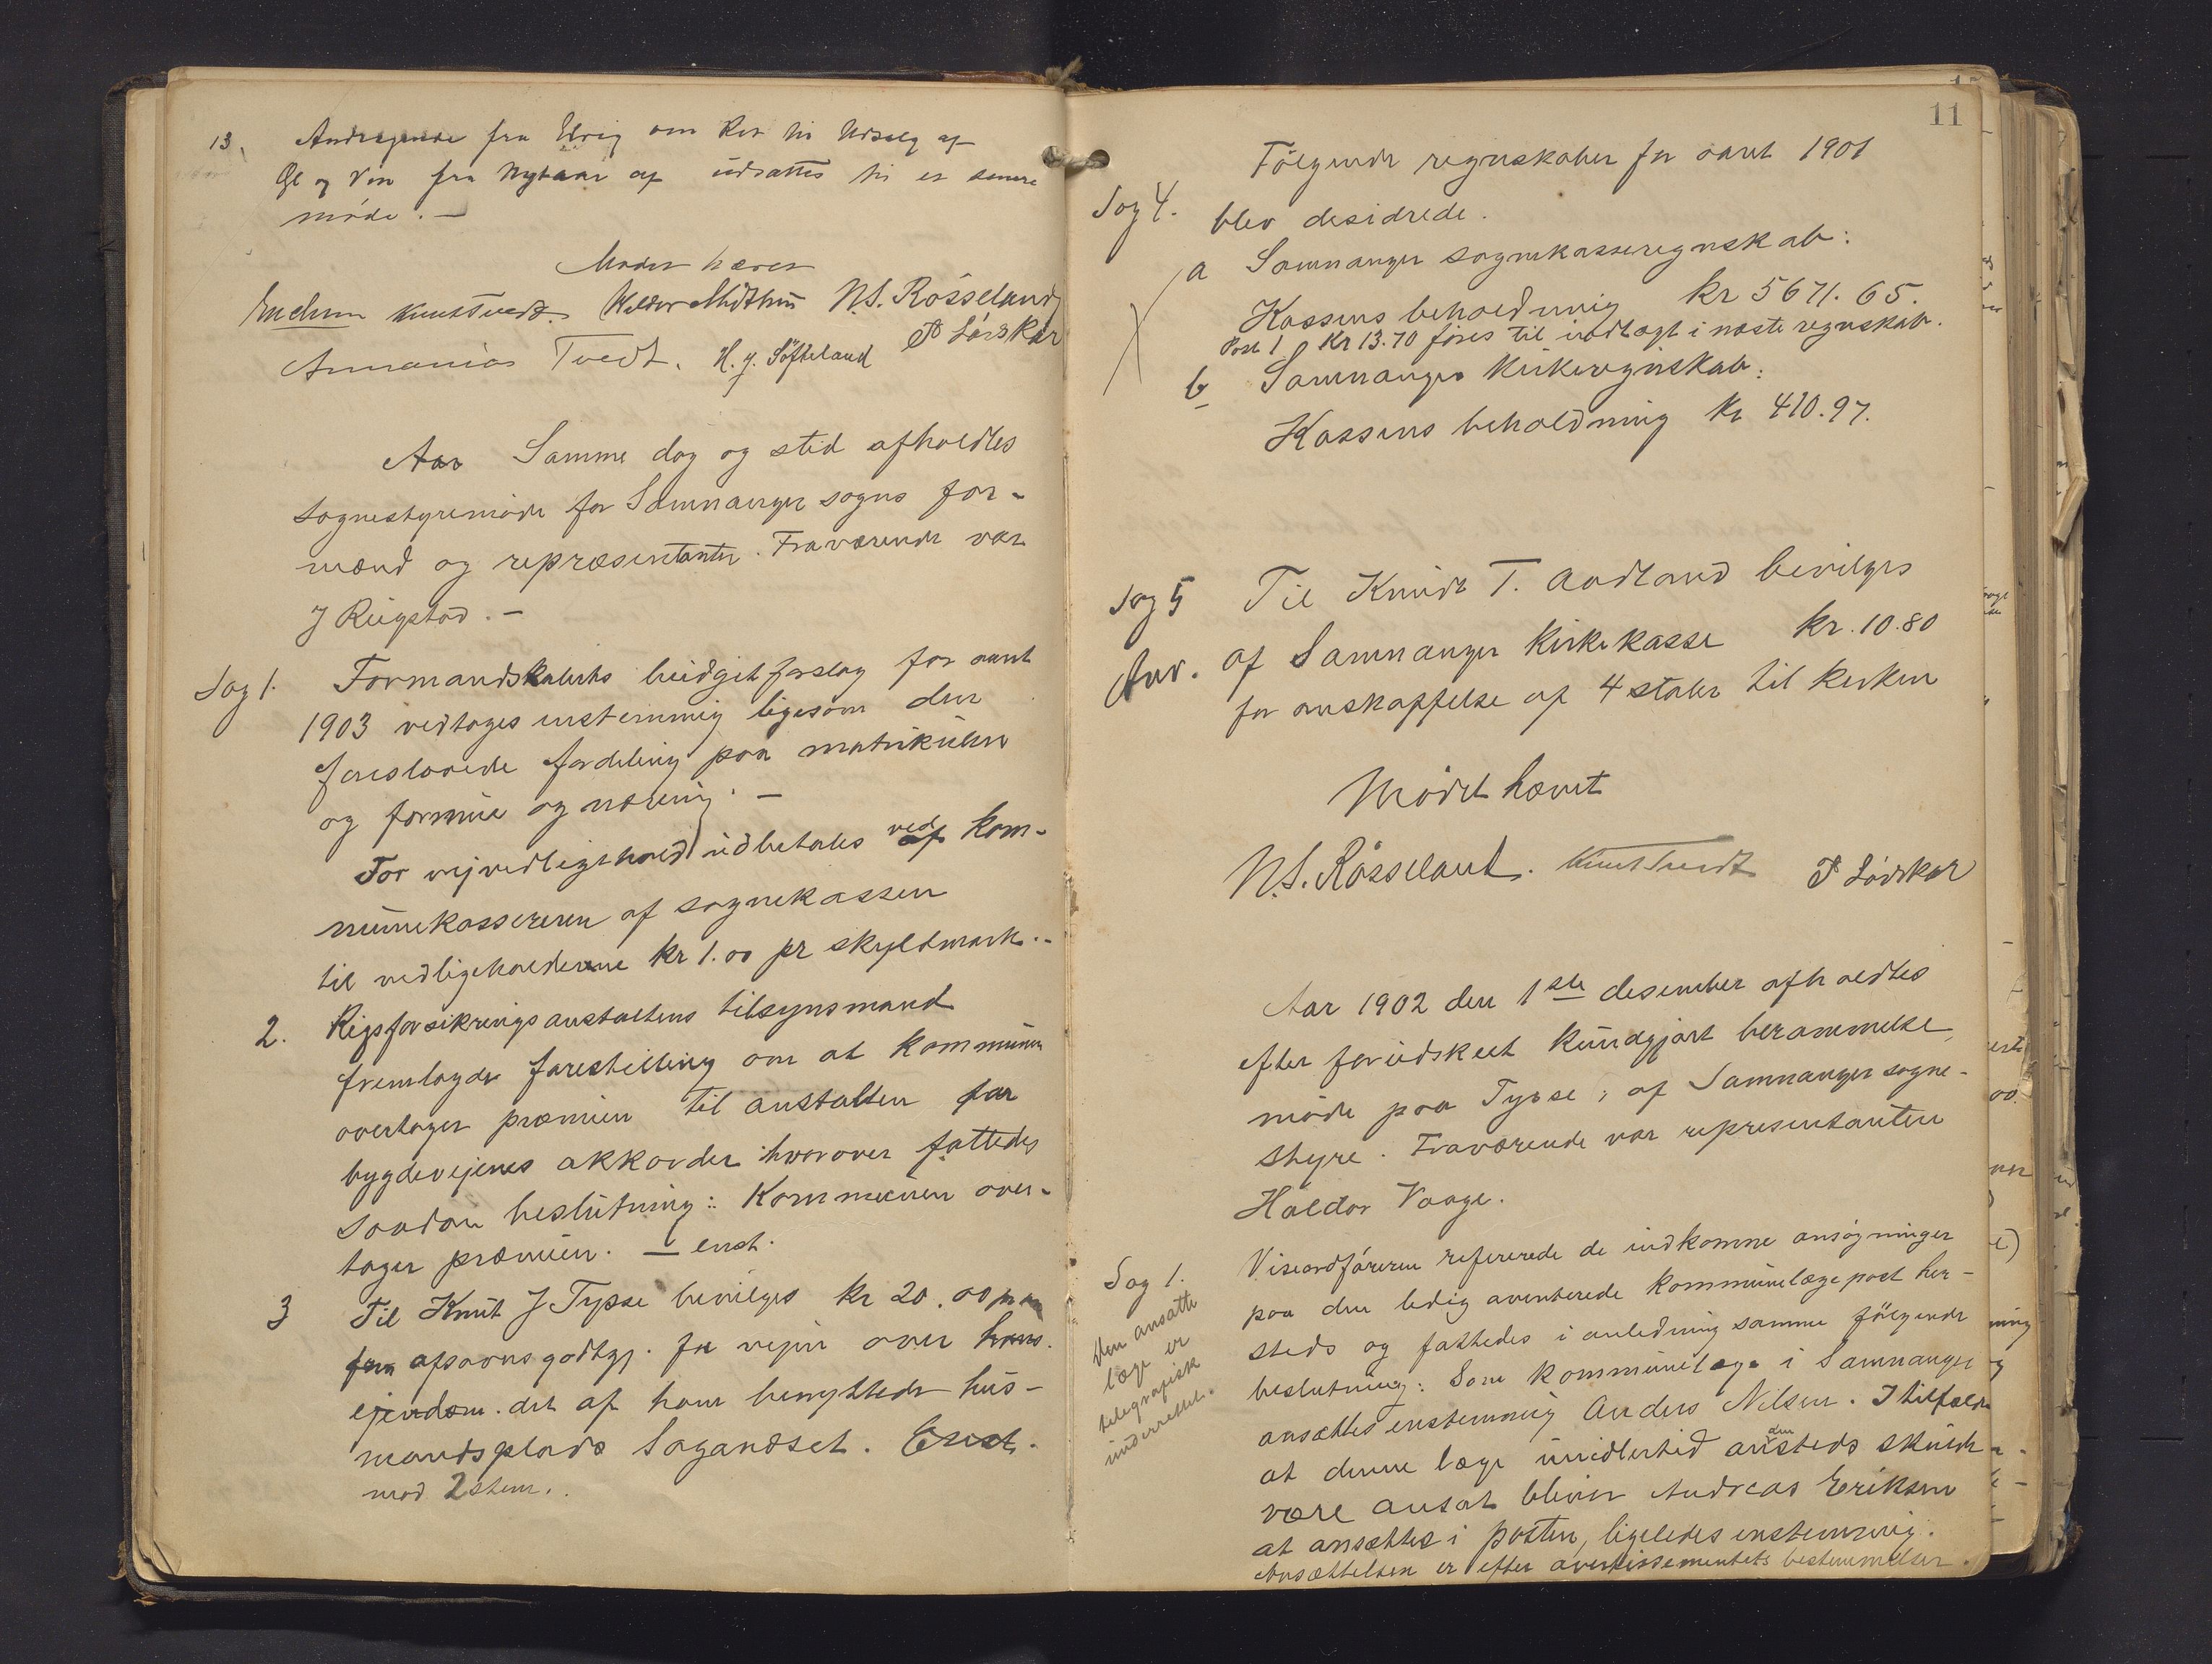 13. Andragende fra Elvig om Ret til Udsalg af
Øl og Vin fra Nytaar af udsattes til et senere
møde. —
Mødet hævet
Knut Tvedt. Haldor Midthun N.S. Røsseland
Annanias Tvedt. H. J. Søfteland P Lørskar
Aar Samme dag og sted afholdtes
sognestyremøde for Samnanger sogns for-
mænd og repræsentanter. Fraværende var
J Reigstad. —
Sag 1. Formandskabets budgetforslag for aaret
1903 vedtages enstemmig ligesom den
foreslaaede fordeling paa matrikulen
og formue og næring. —
For vejvedligehold udbetales ved kom-
munekassereren af sognekassen
til vedligeholderne kr 1.00 pr skyldmark. -
2. Rigsforsikringsanstaltens tilsynsmand
fremlagde forestilling om at kommunen
overtager præmien til anstalten for
bygdevejenes akkorder hvorover fattedes
saadan beslutning: Kommunen over-
tager præmien. — enst.
3 Til Knut J Tysse bevilges kr 20.00 pr
afsavnsgodtgj. for vejen over hans
ejendom. det af ham benyttede hus-
mandsplads Sagandset. Enst.
mod 2 stem.
11
Følgende regnskaber for aaret 1901
Sag 4. blev desidrede.
a Samnanger sognekasseregnskab:
Kassens beholdning kr 5671.65.
Post 1 kr 13.70 føres til indtægt i næste regnskab.
b Samnanger kirkeregnskab:
Kassens beholdning kr 410.97.
Sag 5 Til Knude T. Aadland bevilges
Anv. af Samnanger kirkekasse kr. 10.80
for anskaffelse af 4 stoler til kirken
Mødet hævet
N.S. Røsseland. Knut Tvedt P Lørskar
Aar 1902 den 1ste desember afholdtes
efter forudskeet kundgjort berammelse,
møde paa Tysse, af Samnanger sogne-
styre. Fraværende var representanten
Haldor Vaage.
Sag 1. Viseordføreren refererede de indkomne ansøgninger
paa den ledig averterede kommunelægepost her-
steds og fattedes i anledning samme følgende
beslutning: Som kommunelæge i Samnanger
ansættes enstemmig Anders Nilsen. I tilfælde
at denne læge imidlertid andensteds skulde
være ansat bliver Andreas Eriksen
at ansættes i posten, ligeledes enstemmig.
Ansættelsen er efter avertissementets bestemmelser.
Den ansatte
læge er
telegrafisk
underrettet.